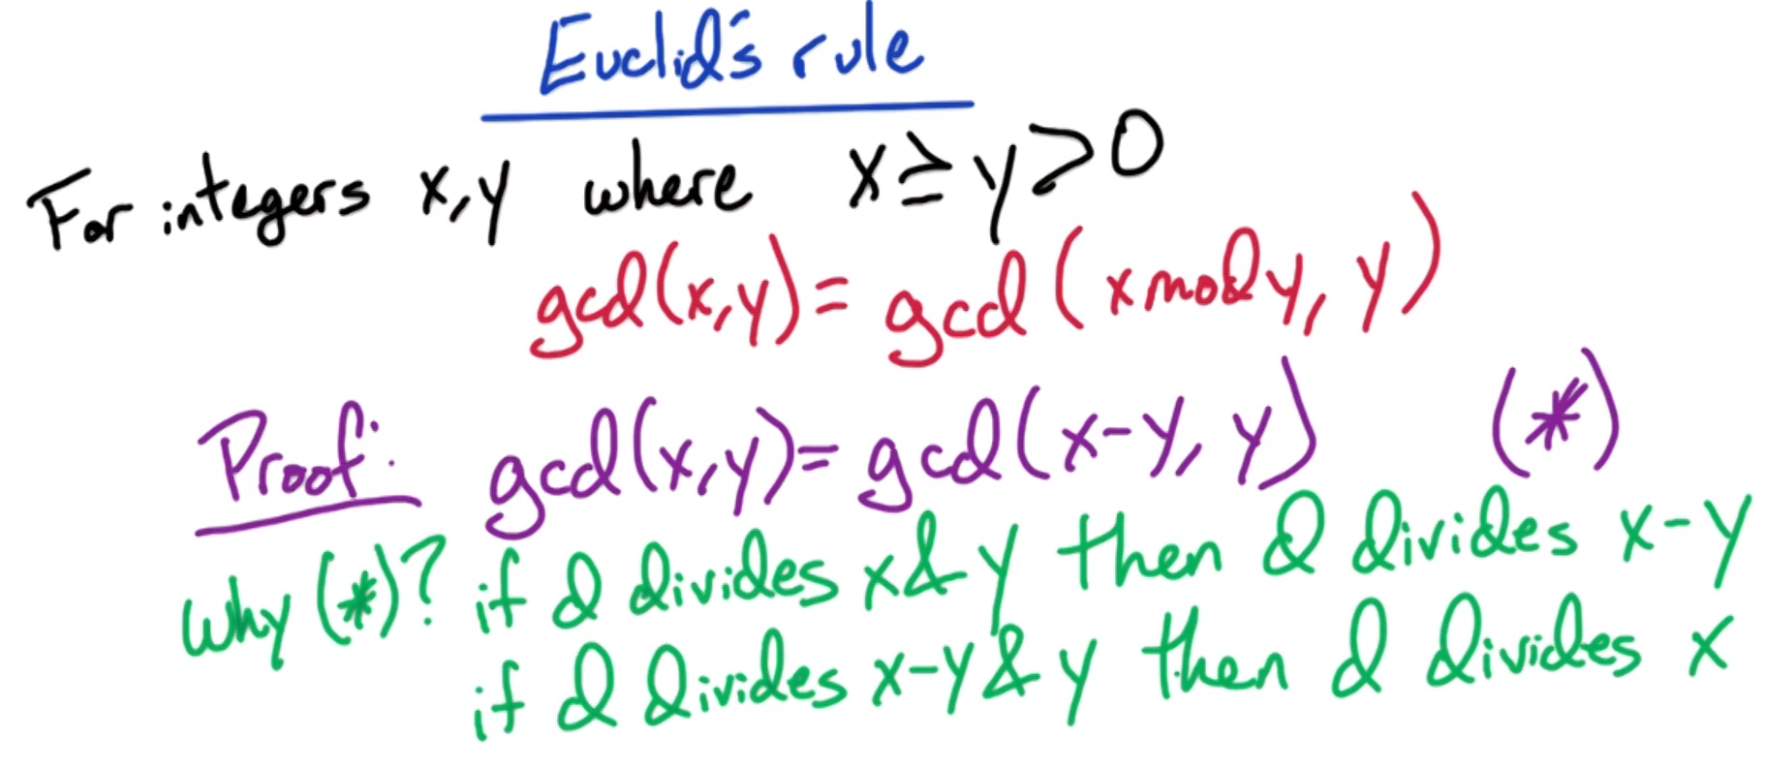 Euclid's rule
For integers x,y where x≥y>0
gcd(x,y)= gcd(x mod y, y)
Proof: gcd(x,y)= gcd(x-y, y) (*)
why (*)? if d divides x&y then d divides x-y
if d divides x-y & y then d divides x